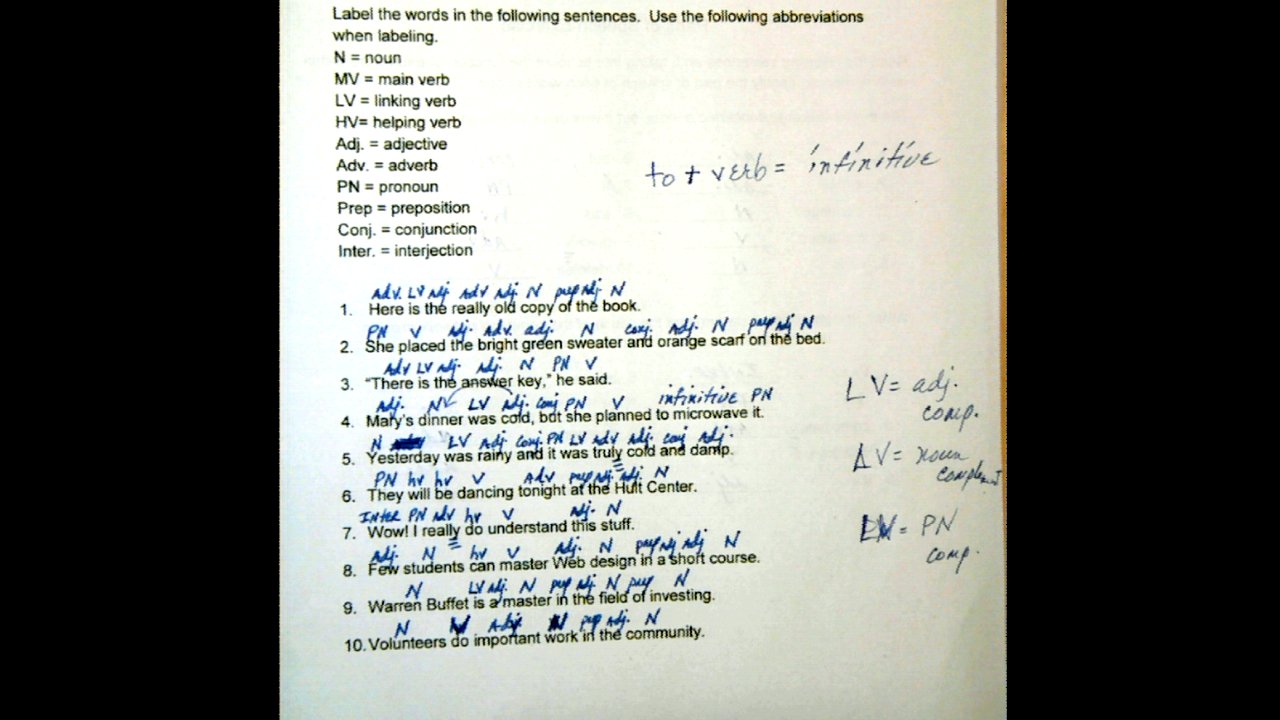 Label the words in the following sentences. Use the following abbreviations
when labeling.
N = noun
MV = main verb
LV = linking verb
HV= helping verb
Adj. = adjective
Adv. = adverb
PN = pronoun
Prep = preposition
Conj. = conjunction
Inter. = interjection
to + verb = infinitive
Adv. LV Adj. Adv Adj. N prep Adj. N
1. Here is the really old copy of the book.
PN V Adj. Adv. adj. N conj. Adj. N prep Adj N
2. She placed the bright green sweater and orange scarf on the bed.
Adv LV Adj. Adj. N PN V
3. "There is the answer key," he said.
Adj. N LV Adj. Conj PN V infinitive PN
4. Mary's dinner was cold, but she planned to microwave it.
N LV Adj Conj. PN LV Adv Adj. conj Adj.
5. Yesterday was rainy and it was truly cold and damp.
PN hv hv V Adv prep Adj. Adj. N
6. They will be dancing tonight at the Hult Center.
Inter PN Adv hv V Adj. N
7. Wow! I really do understand this stuff.
Adj. N hv V Adj. N prep Adj Adj N
8. Few students can master Web design in a short course.
N LV adj. N prep adj. N prep N
9. Warren Buffet is a master in the field of investing.
N V Adj N prep Adj. N
10. Volunteers do important work in the community.
LV = adj.
comp.
LV = noun
complement
LV = PN
comp.